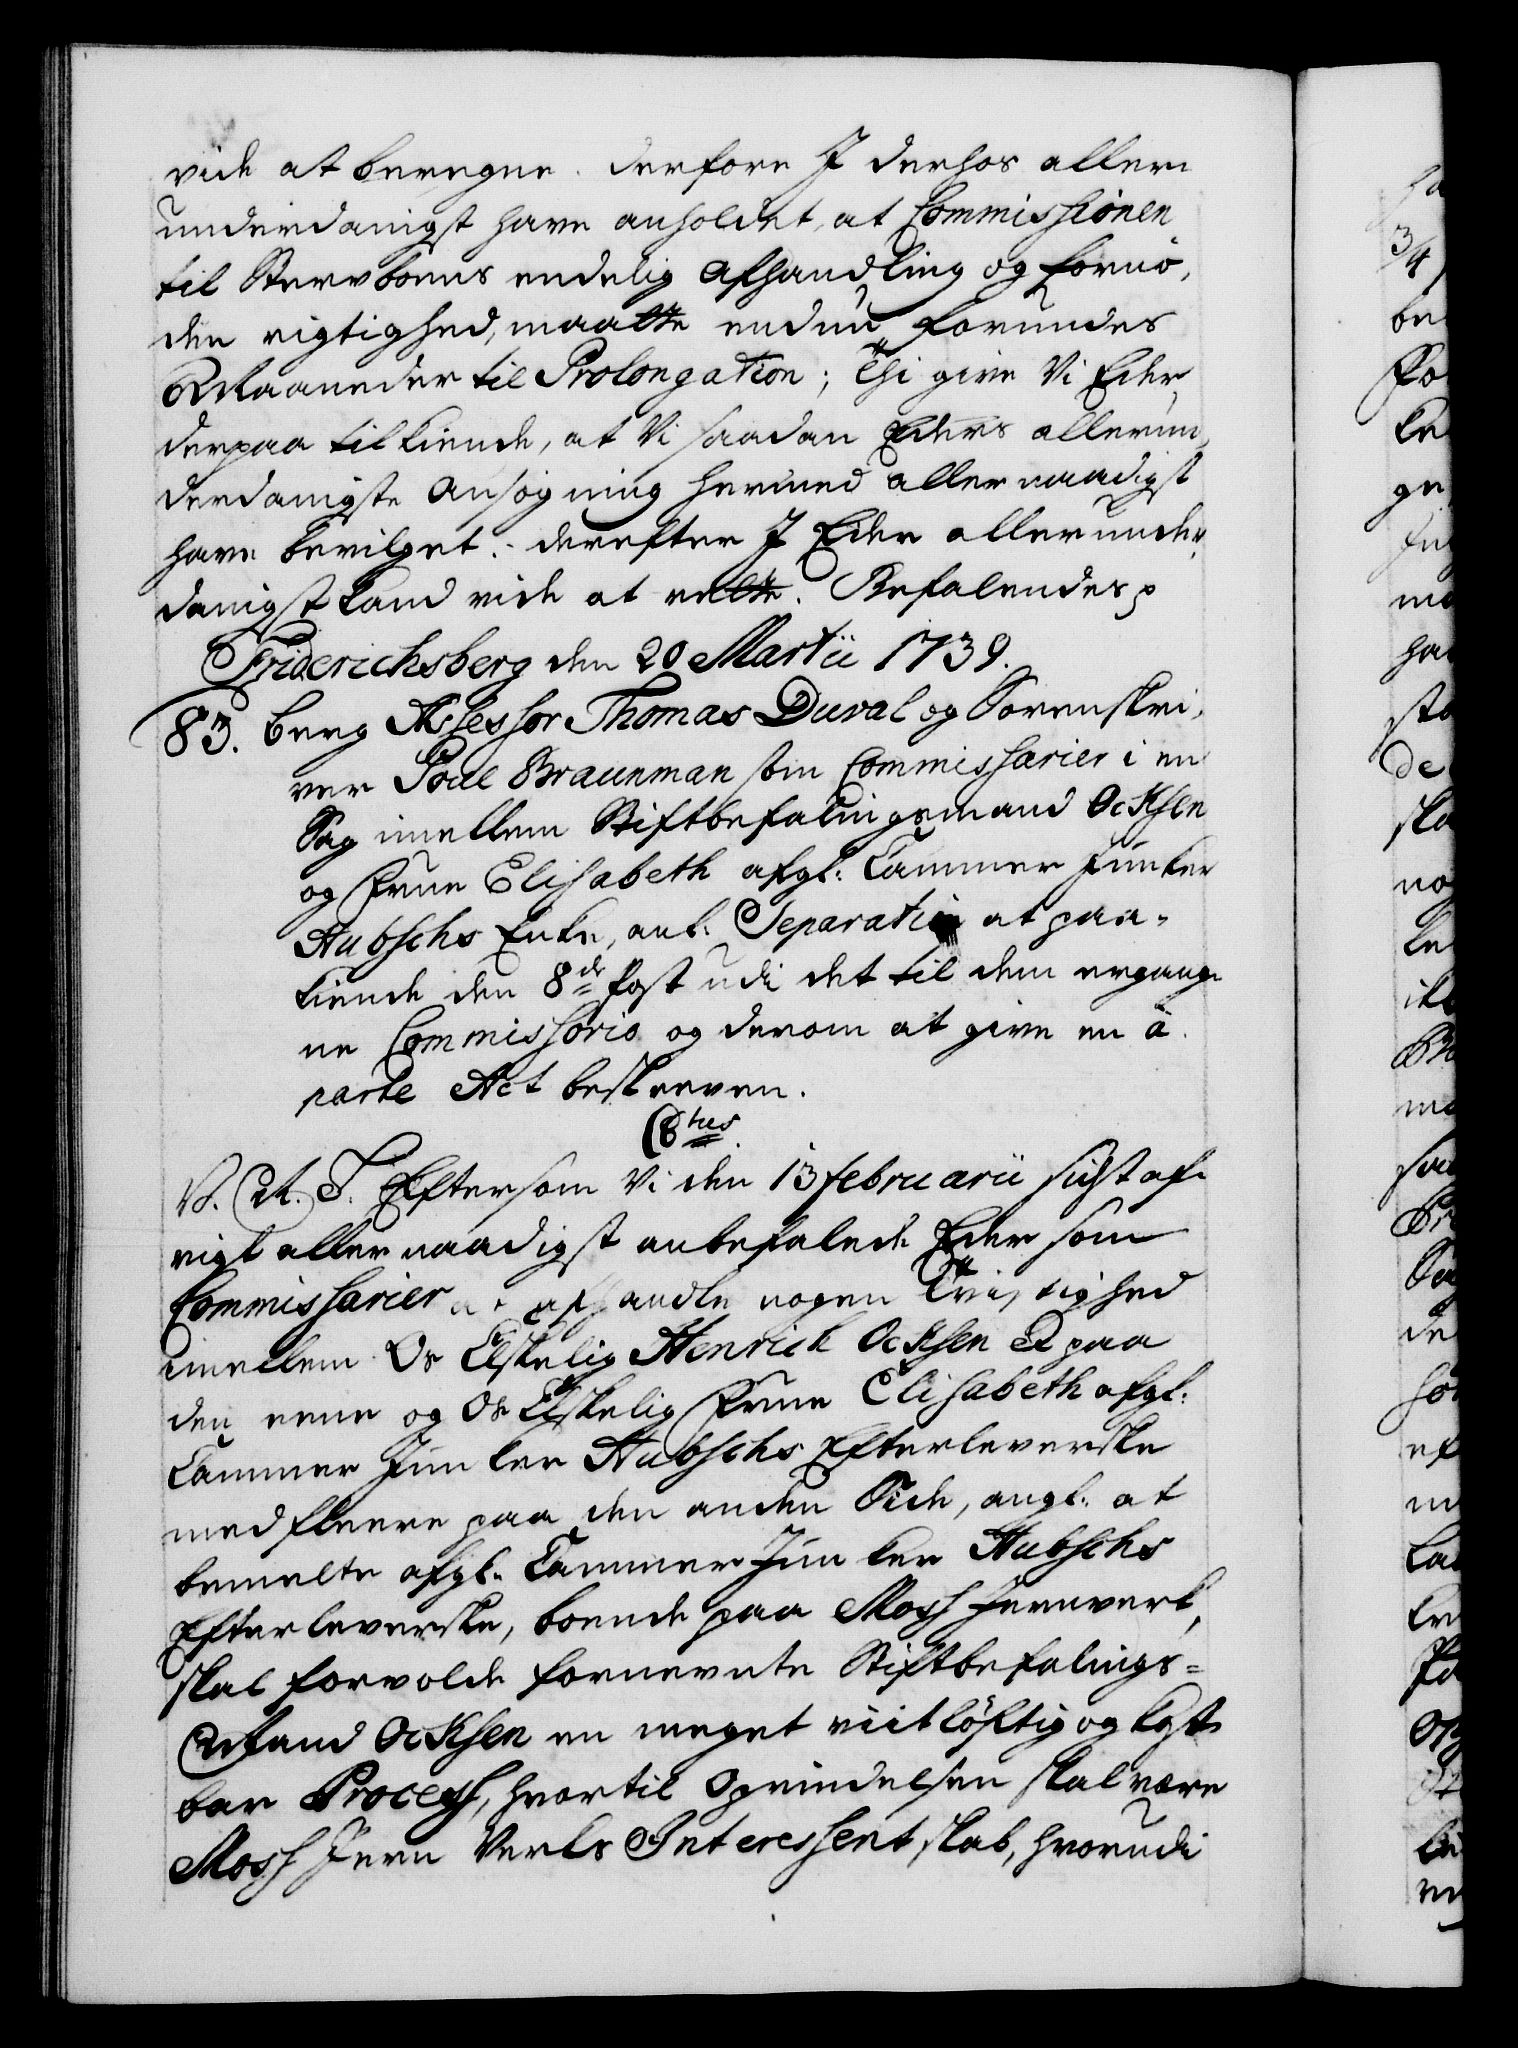 vide at beregne. derfore I derhos aller-
underdanigst have anholdet, at Commissionen
til Stervboens endelig Afhandling og fornö-
den rigtighed, maatte endnu forundes
2 Maaneder til Prolongation; Thi give Vi Eder
derpaa tilkiende, at Vi saadan Eders allerun-
derdanigste Ansögning hermed allernaadigst
have bevilget. derefter I Eder allerunder-
danigst kand vide at rette. Befalendes p
Friderichsberg den 20 Martii 1739.
83. Berg Assessor Thomas Duval og Sorenskri-
ver Poul Braunman som Commissarier i en
Sag imellem Stiftbefalingsmand Ocksen
og Frue Elisabeth afgl: Cammer Junker
Hubschs Enke, anl: Separation at paa-
kiende den 8de Post udi det til dem ergang-
ne Commissorio og derom at give en à
parte Act beskreven.
V. A. T. Eftersom Vi den 13 februarii sidst af-
vigt allernaadigst anbefalede Eder som
Commissarier at afhandle nogen Tvistighed
imellem Os Elskelig Henrick Ocksen p paa
den eene og Os Elskelig Frue Elisabeth afgl:
Cammer Junker Hubschs Efterleverske
med fleere paa den anden Side, angl: at
bemelte afgl: Cammer Junker Hubschs
Efterleverske, boende paa Moss Jernverk,
skal forvolde fornevnte Stiftbefalings-
Mand Ocksen en meget viitlöftig og kost-
bar Process, hvortil Oprindelsen skal være
Moss Jern Verks Interessentskab, hvorudi